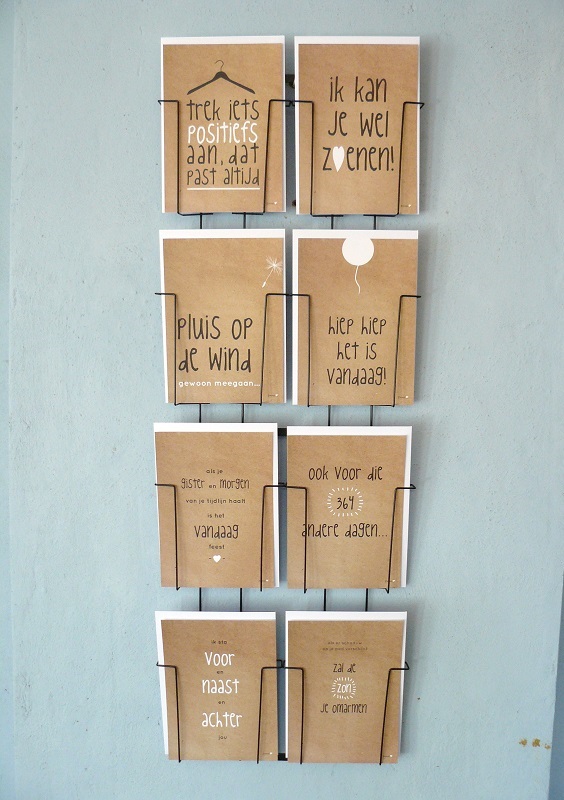 trek iets
positiefs
aan, dat
past altijd
ik kan
je wel
zoenen!
pluis op
de wind
gewoon meegaan...
hiep hiep
het is
vandaag!
als je
gister en morgen
van je tijdlijn haalt
is het
vandaag
feest
ook voor die
364
andere dagen...
ik sta
voor
en
naast
en
achter
jou
zal de
zon
je omarmen